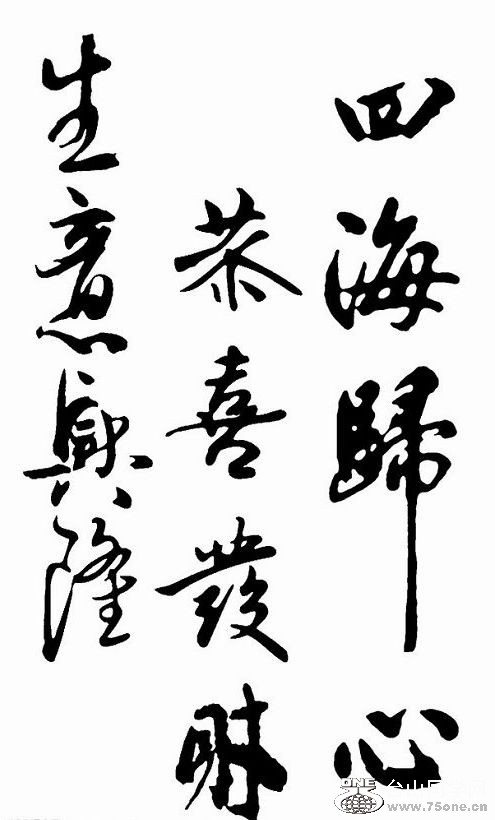 四海歸心
恭喜發財
生意興隆
ONE
www.75one.cn